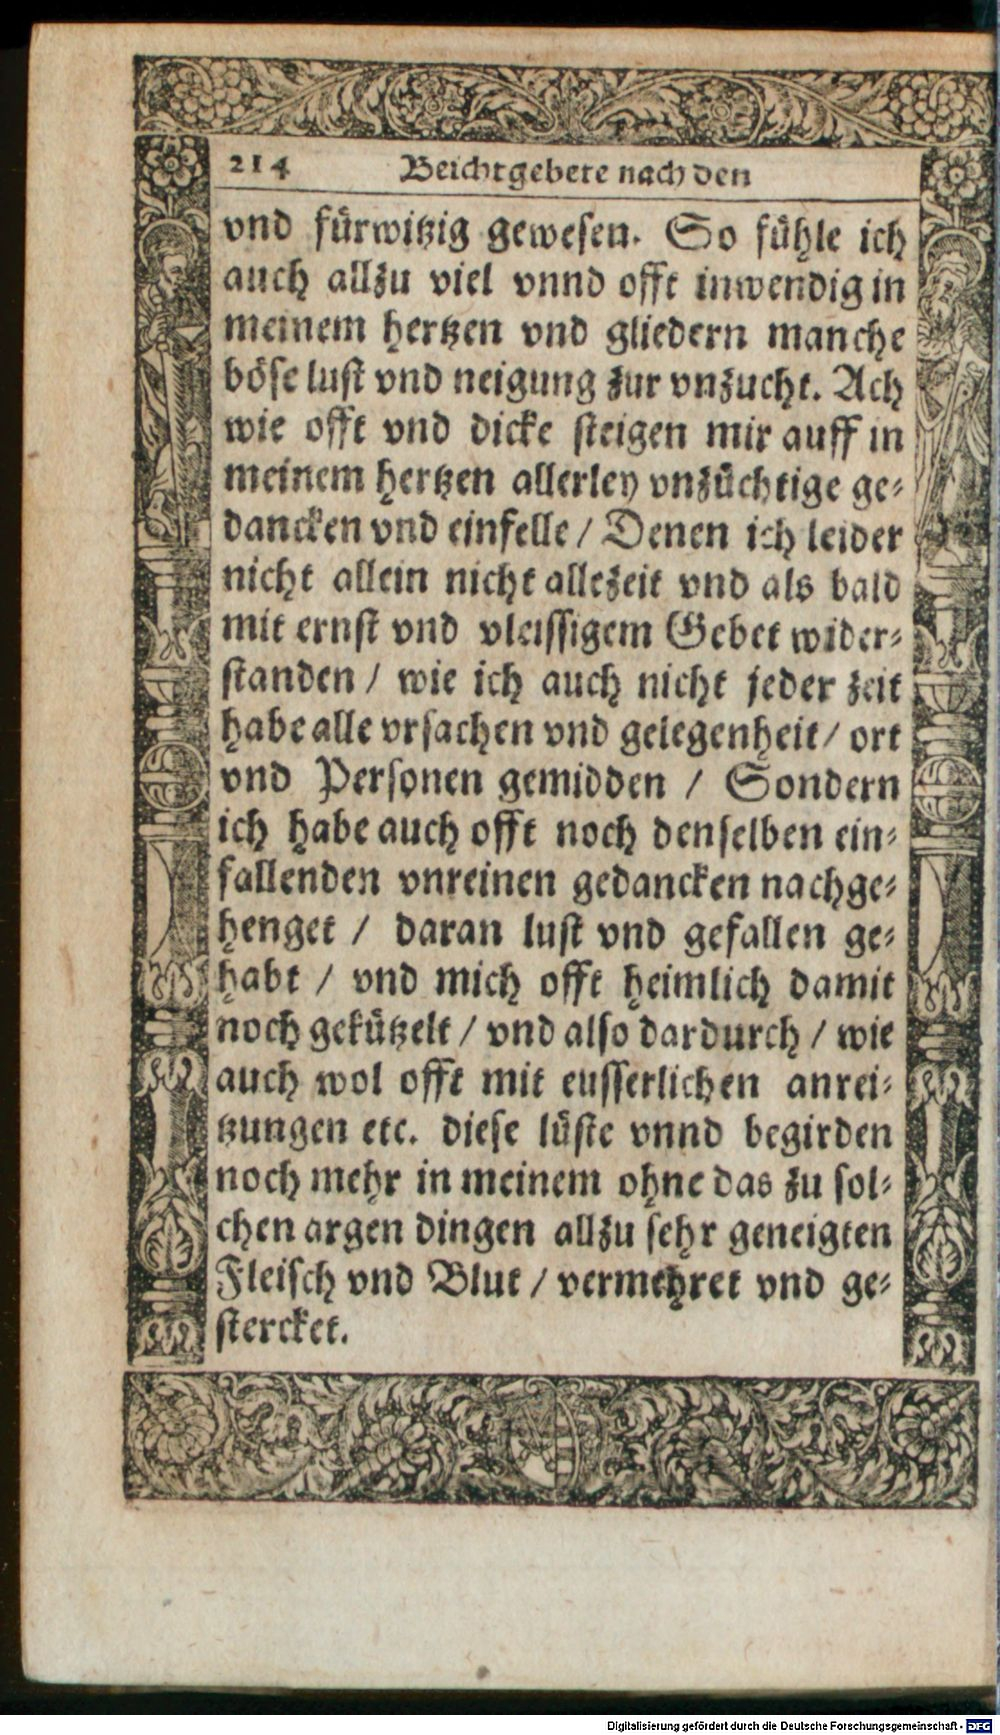 214 Beichtgebete nach den
vnd fürwitzig gewesen. So fühle ich
auch allzu viel vnnd offt inwendig in
meinem hertzen vnd gliedern manche
böse lust vnd neigung zur vnzucht. Ach
wie offt vnd dicke steigen mir auff in
meinem hertzen allerley vnzüchtige ge-
dancken vnd einfelle / Denen ich leider
nicht allein nicht allezeit vnd als bald
mit ernst vnd vleissigem Gebet wider-
standen / wie ich auch nicht jeder zeit
habe alle vrsachen vnd gelegenheit / ort
vnd Personen gemidden / Sondern
ich habe auch offt noch denselben ein-
fallenden vnreinen gedancken nachge-
henget / daran lust vnd gefallen ge-
habt / vnd mich offt heimlich damit
noch gekützelt / vnd also dardurch / wie
auch wol offt mit eusserlichen anrei-
tzungen etc. diese lüste vnnd begirden
noch mehr in meinem ohne das zu sol-
chen argen dingen allzu sehr geneigten
Fleisch vnd Blut / vermehret vnd ge-
stercket.
Digitalisierung gefördert durch die Deutsche Forschungsgemeinschaft - DFG